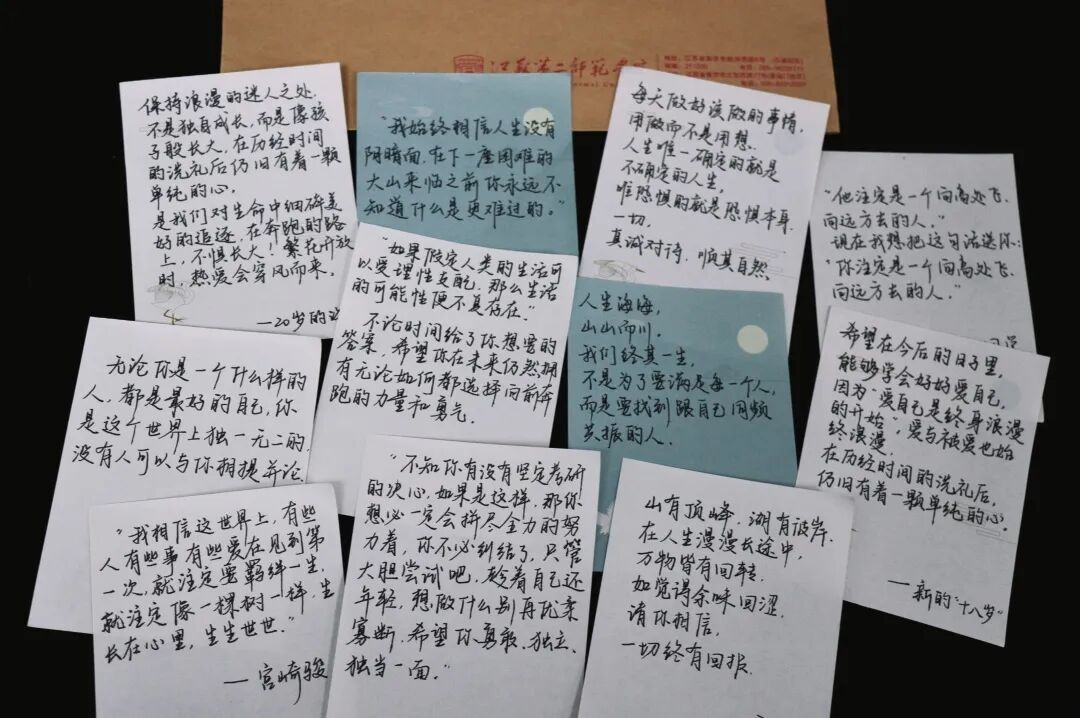 江苏第二师范学院
保持浪漫的迷人之处,
不是独自成长,而是像孩
子般长大,在历经时间
的洗礼后仍旧有着一颗
单纯的心。
是我们对生命中细碎美
好的追逐,在奔跑的路
上,不惧长大!繁花开放
时,热爱会穿风而来。
—20岁的
"我始终相信人生没有
阴暗面,在下一座困难的
大山来临之前你永远不
知道什么是更难过的。"
每天做好该做的事情,
用做而不是用想.
人生唯一确定的就是
不确定的人生,
唯恐惧的就是恐惧本身
一切.
真诚对待,顺其自然
"他注定是一个向高处飞、
向远方去的人。"
现在我想把这句话送你:
"你注定是一个向高处飞、
向远方去的人。"
"如果假定人类的生活可
以受理性支配,那么生活
的可能性便不复存在。"
不论时间给了你想要的
答案,希望你在未来仍然拥
有无论如何都选择向前奔
跑的力量和勇气。
人生海海,
山山而川。
我们终其一生,
不是为了要满足每一个人,
而是要找到跟自己同频
共振的人.
无论你是一个什么样的
人,都是最好的自己,你
是这个世界上独一无二的,
没有人可以与你相提并论.
希望在今后的日子里,
能够学会好好爱自己,
因为"爱自己是终身浪漫
的开始",爱与被爱也始
终浪漫.
在历经时间的洗礼后,
仍旧有着一颗单纯的心。
—新的"十八岁"
"我相信这世界上,有些
人有些事有些爱在见到第
一次,就注定要羁绊一生,
就注定像一棵树一样,生
长在心里,生生世世。"
—宫崎骏
"不知你有没有坚定考研
的决心,如果是这样,那你
想必一定会拼尽全力的努
力着,你不必纠结了,只管
大胆尝试吧,趁着自己还
年轻,想做什么别再优柔
寡断,希望你勇敢、独立、
独当一面。"
山有顶峰,湖有彼岸.
在人生漫漫长途中,
万物皆有回转.
如觉得余味回涩,
请你相信,
一切终有回报.